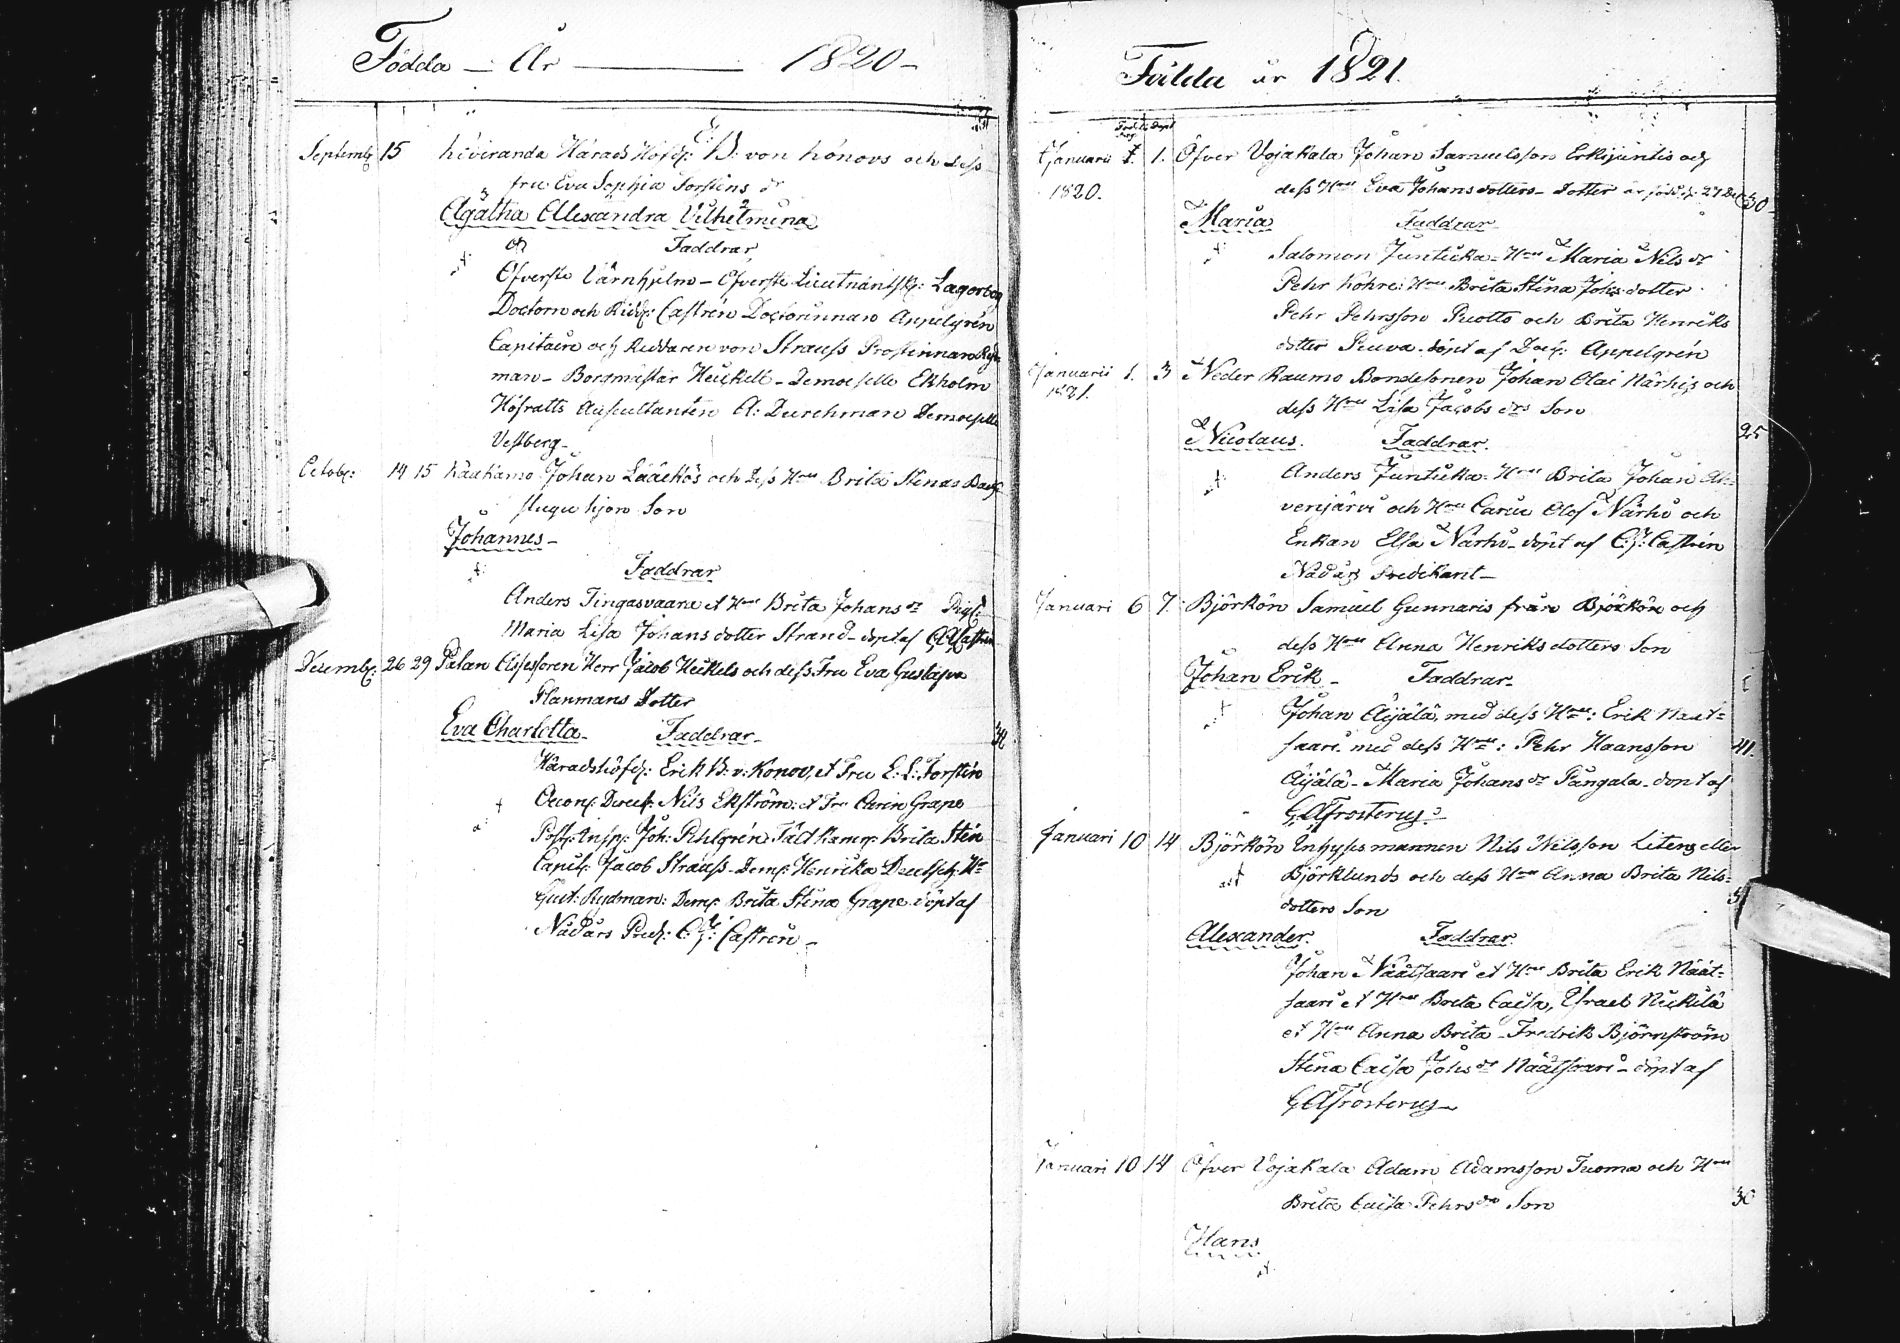 Födda — År — 1820 —
Septemb: 15 Kiviranda Härads Höfd: E: B: von Konovs och dess
fru Eva Sophia Forstens dr
Agatha Alexandra Vilhelmina
Faddrar
Öfverste Värnhjelm — Öfverste Lieutnantsk: Lagerborg
Doctorn och Ridd: Castrén Doctorinnan Appelgrén
Capitain och Riddaren von Strauss Prostinnan Ryd-
man — Borgmästar Heickell — Demoiselle Ekholm
Hofratts Auscultanten A: Durchman Demoiselle
Vestberg —
Octob: 14 15 Kaakamo Johan Lääkkös och dess Hru Brita Stinas Back
stugu hjon Son
Johannes —
Faddrar
Anders Tingasvaara et Hru Brita Johans dr
Maria Lisa Johans dotter Strand — döpt af Castrén
Decemb: 26 29 Palan Assessoren Herr Jacob Heikels och dess Fru Eva Gustafva
Planmans Dotter
Eva Charlotta — Faddrar —
34
Häradshöfd: Erik B: v: Konov, et Fru E: S: Forstén
Oecon: Direct: Nils Ekström: et Fru Carin Grape
Post: Insp: Joh: Pihlgrén Fält Kamr: Brita Stén
Capit: Jacob Strauss — Dems: Henrika Deutsch: Hr
Gust: Rydman: Dems: Brita Stina Grape döpt af
Nådårs Pred: C: J: Castrén —
Födda år 1821.
Januarii 1. 1. Öfver Vojakala Johan Samuelsson Erkijuntis och
1820. dess Hru Eva Johans dotters — dotter är född d: 27 Dec 30
Maria Faddrar
Salomon Juntikka = Hru Maria Nils dr
Pehr Kohre: Hru Brita Stina Johs dotter
Pehr Pehrsson Puotto och Brita Henriks
dotter Peuva. döpt af Doct: Appelgrén
Januarii 1. 3 Neder Raumo Bondesonen Johan Olai Närhis och
1821. dess Hru Lisa Jacobs drs Son
Nicolaus. Faddrar. 25
Anders Juntikka = Hru Brita Johan Ah-
venjärvi och Hru Carin Olof Närhi och
Enkan Elsa Närhi — döpt af C: J: Castrén
Nådårs Predikant —
Januari 6 7. Björkön Samuel Gunnaris från Björkön och
dess Hru Anna Henriks dotters Son
Johan Erik — Faddrar —
Johan Äijälä, med dess Hru: Erik Näät-
saari med dess Hru: Pehr Haansson 41.
Äijälä — Maria Johans dr Pångala — döpt af
G A Frosterus
Januari 10 14 Björkön Inhyses mannen Nils Nilsson Litens eller
Björklunds och dess Hru Anna Brita Nils-
dotters Son
Alexander. Faddrar.
Johan Näätsaari et Hru Brita Erik Näät-
saari et Hru Brita Caisa, Israel Nikkilä
et Hru Anna Brita — Fredrik Björnström
Stina Caisa Johs dr Näätsaari — döpt af
G A Frosterus —
Januari 10 14 Öfver Vojakala Adam Adamsson Tuoma och Hru
Brita Caisa Pehrs drs Son 30
Hans